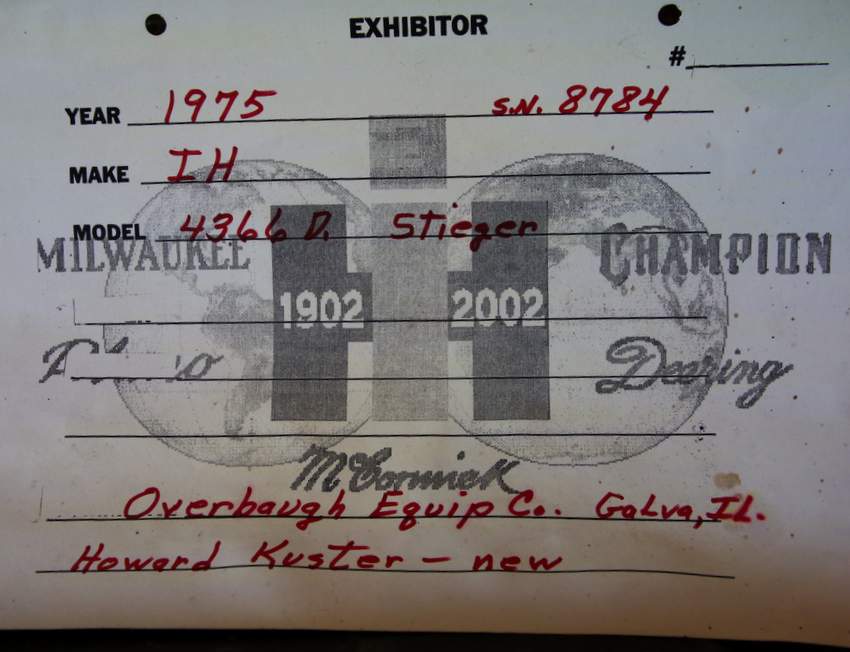 EXHIBITOR
#
YEAR 1975 S.N. 8784
MAKE IH
MODEL 4366 D. Stieger
MILWAUKEE CHAMPION
1902 2002
Deering
McCormick
Overbaugh Equip Co. Galva, IL.
Howard Kuster - new